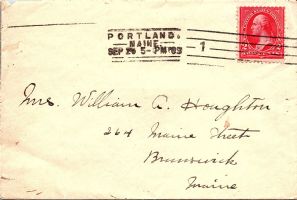 PORTLAND.
MAINE
SEP 5-PM
1
Mrs. William A. Houghton
264 Maine Street
Brunswick
Maine